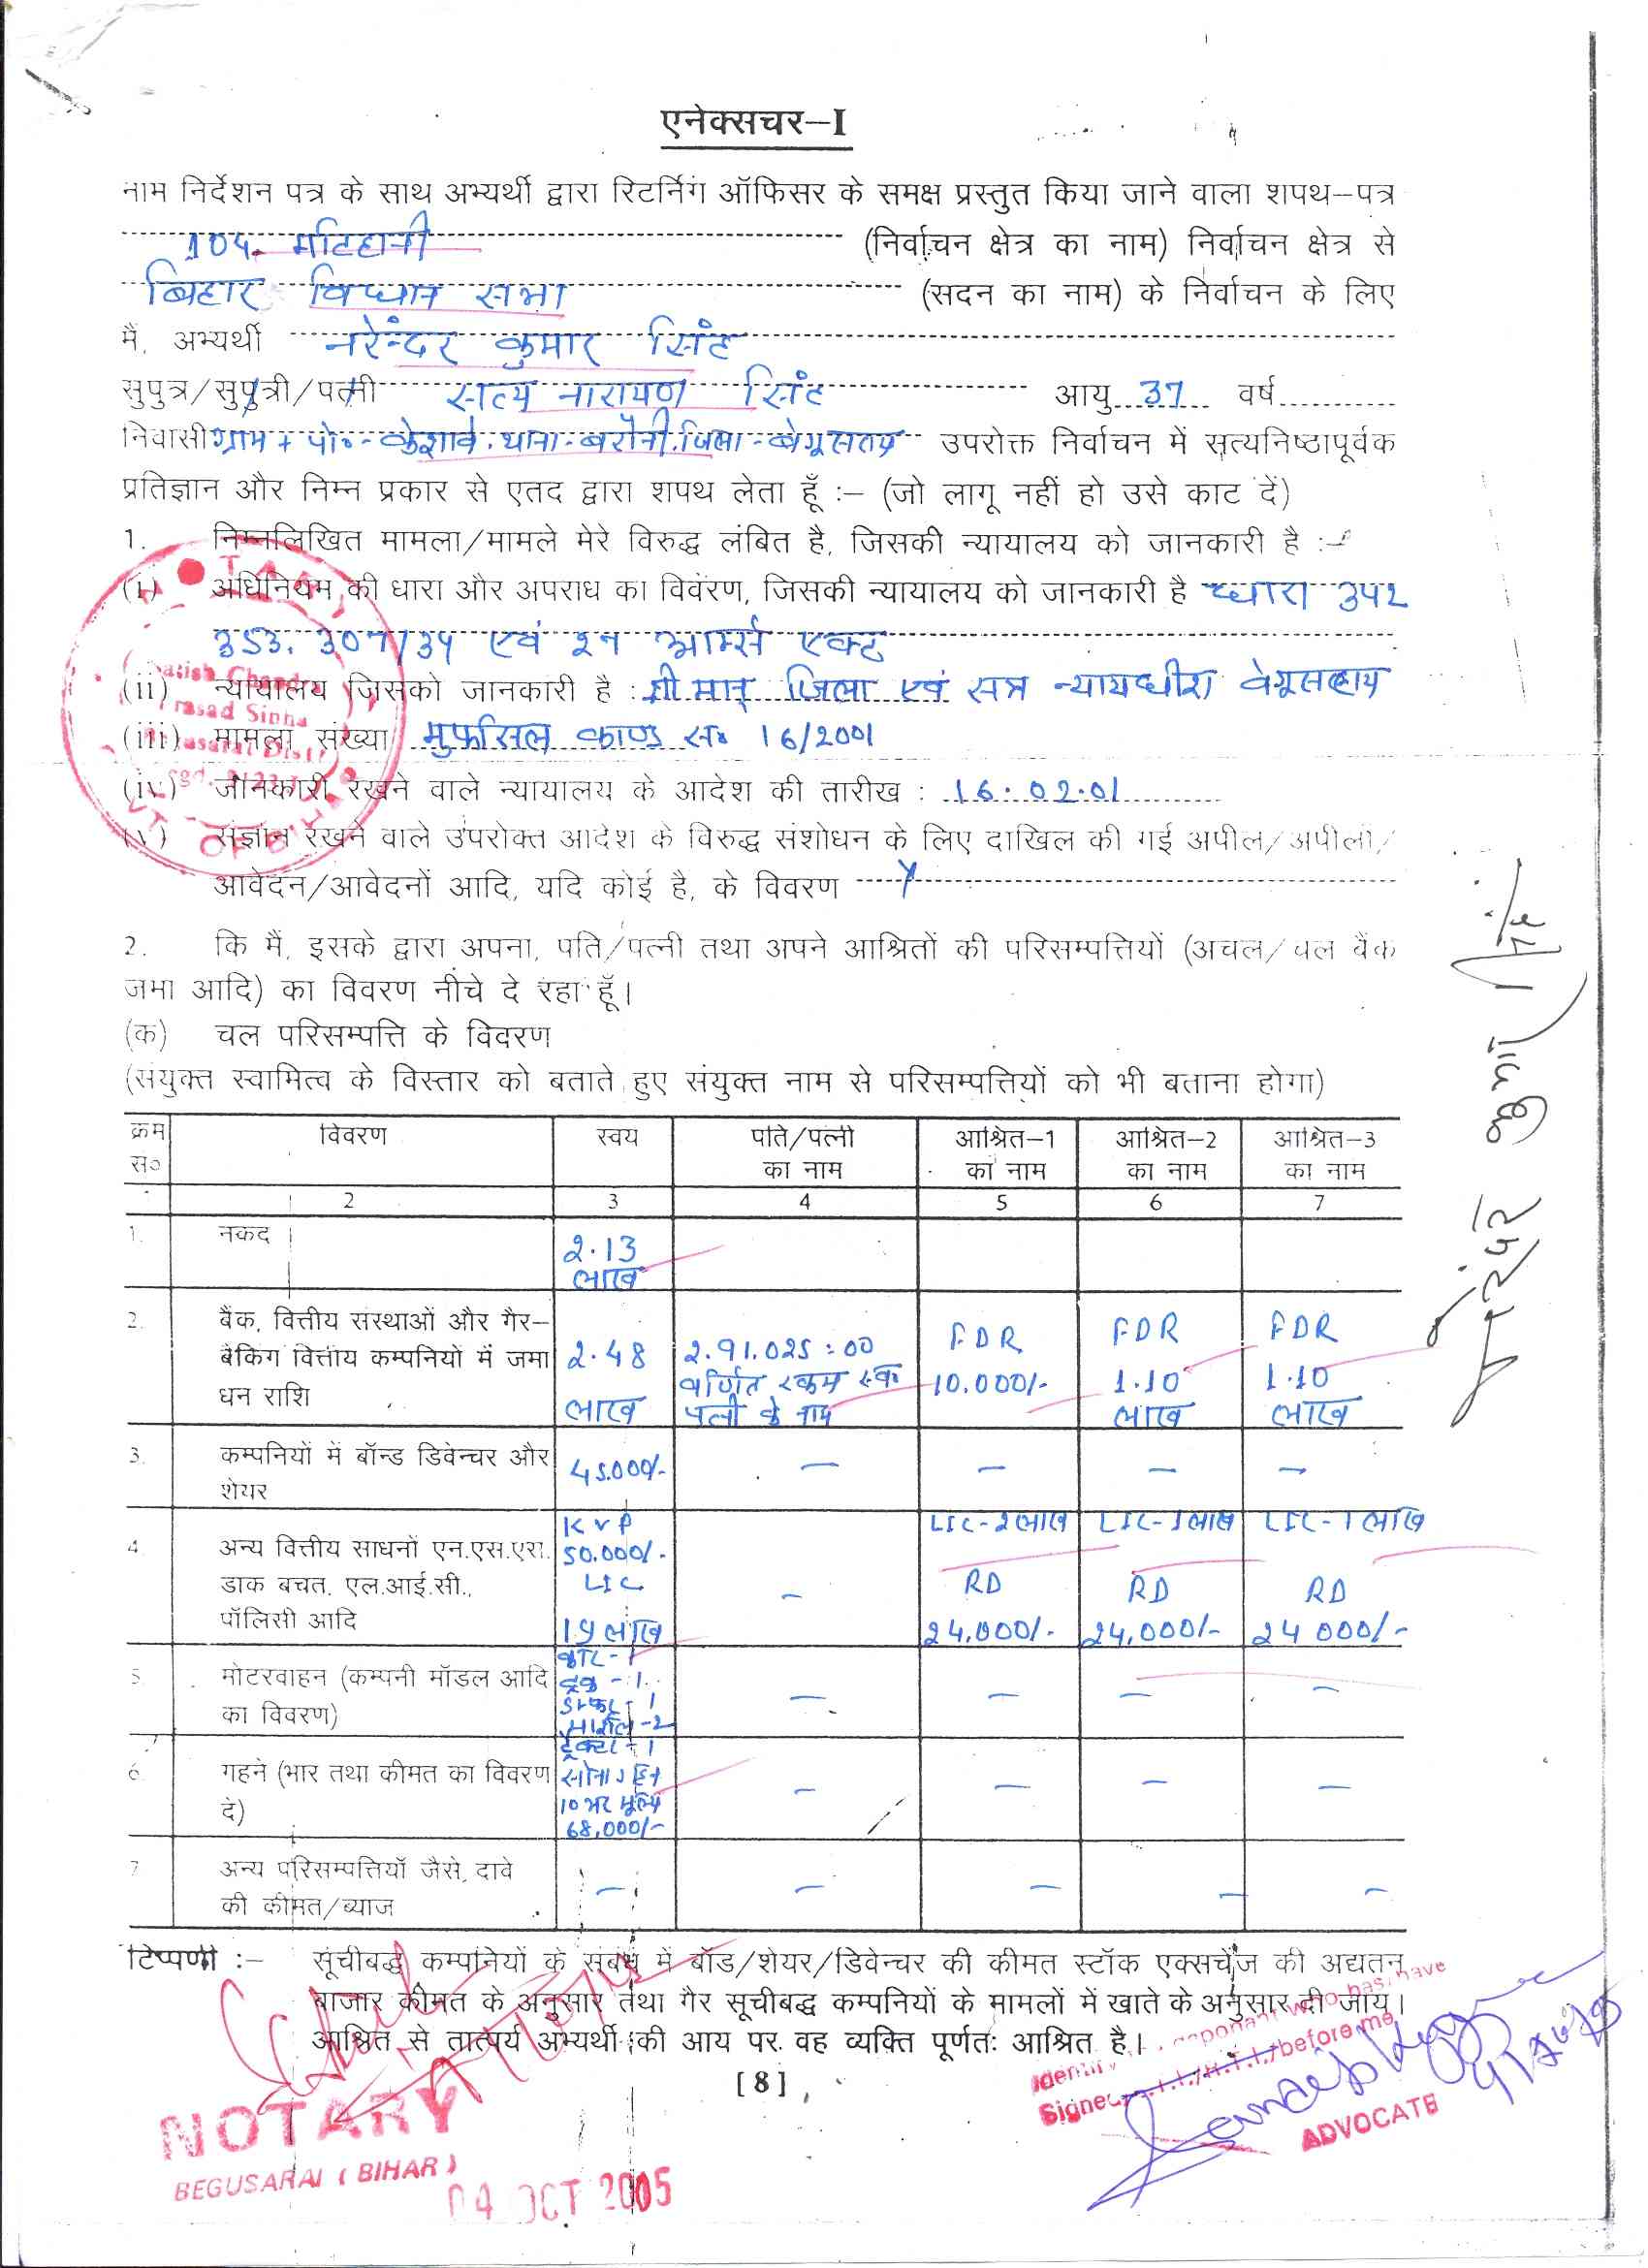 एनेक्सचर-I
नाम निर्देशन पत्र के साथ अभ्यर्थी द्वारा रिटर्निंग ऑफिसर के समक्ष प्रस्तुत किया जाने वाला शपथ-पत्र
104. मटिहानी (निर्वाचन क्षेत्र का नाम) निर्वाचन क्षेत्र से
बिहार विधान सभा (सदन का नाम) के निर्वाचन के लिए
मैं, अभ्यर्थी नरेन्दर कुमार सिंह
सुपुत्र/सुपुत्री/पत्नी सत्य नारायण सिंह आयु 37 वर्ष
निवासी ग्राम + पो०- केशावे. थाना-बरौनी. जिला-बेगूसराय उपरोक्त निर्वाचन में सत्यनिष्ठापूर्वक
प्रतिज्ञान और निम्न प्रकार से एतद द्वारा शपथ लेता हूँ :- (जो लागू नहीं हो उसे काट दें)
1. निम्नलिखित मामला/मामले मेरे विरुद्ध लंबित है, जिसकी न्यायालय को जानकारी है :-
(i) अधिनियम की धारा और अपराध का विवरण, जिसकी न्यायालय को जानकारी है धारा 342
353. 307/34 एवं 27 आर्म्स एक्ट
(ii) न्यायालय जिसको जानकारी है : श्रीमान् जिला एवं सत्र न्यायधीश बेगूसराय
(iii) मामला संख्या मुफसिल काण्ड सं० 16/2001
(iv) जानकारी रखने वाले न्यायालय के आदेश की तारीख : 16.02.01
(v) संज्ञान रखने वाले उपरोक्त आदेश के विरुद्ध संशोधन के लिए दाखिल की गई अपील/अपीलों/
आवेदन/आवेदनों आदि, यदि कोई है, के विवरण
2. कि मैं, इसके द्वारा अपना, पति/पत्नी तथा अपने आश्रितों की परिसम्पत्तियों (अचल/चल बैंक
जमा आदि) का विवरण नीचे दे रहा हूँ।
(क) चल परिसम्पत्ति के विवरण
(संयुक्त स्वामित्व के विस्तार को बताते हुए संयुक्त नाम से परिसम्पत्तियों को भी बताना होगा)
क्रम सं० विवरण स्वय पति/पत्नी का नाम आश्रित-1 का नाम आश्रित-2 का नाम आश्रित-3 का नाम
2 3 4 5 6 7
1. नकद 2.13 लाख
2. बैंक, वित्तीय संस्थाओं और गैर- FDR FDR FDR
बैकिंग वित्तीय कम्पनियों में जमा 2.48 2.91.025:00 10.000/- 1.10 1.10
धन राशि लाख वर्णित रकम पत्नी के नाम लाख लाख
3. कम्पनियों में बॉन्ड डिवेन्चर और शेयर 45.000/- – – – –
4. अन्य वित्तीय साधनों एन.एस.एस. KVP 50.000/- LIC-2 लाख LIC-1 लाख LIC-1 लाख
डाक बचत, एल.आई.सी., LIC – RD RD RD
पॉलिसी आदि 19 लाख 24,000/- 24,000/- 24000/-
5. मोटरवाहन (कम्पनी मॉडल आदि का विवरण) कार-1 ट्रक-1 मार्शल-2 ट्रैक्टर-1 – – – –
6. गहने (भार तथा कीमत का विवरण दे) 10 भर मूल्य 68,000/- – – – –
7 अन्य परिसम्पत्तियाँ जैसे, दावे की कीमत/ब्याज – – – – –
टिप्पणी :- सूचीबद्ध कम्पनियों के संबंध में बॉड/शेयर/डिवेन्चर की कीमत स्टॉक एक्सचेंज की अद्यतन
बाजार कीमत के अनुसार तथा गैर सूचीबद्ध कम्पनियों के मामलों में खाते के अनुसार दी जाय।
आश्रित से तात्पर्य अभ्यर्थी की आय पर वह व्यक्ति पूर्णतः आश्रित है।
[8]
नरेंदर कुमार सिंह
NOTARY
BEGUSARAI (BIHAR)
04 OCT 2005
who has/have
before me
ADVOCATE